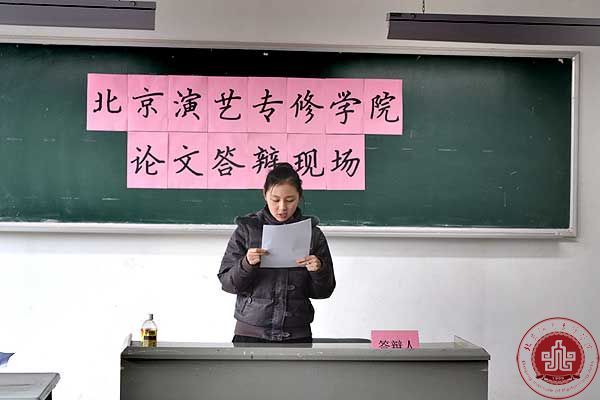 北京演艺专修学院
论文答辩现场
答辩人